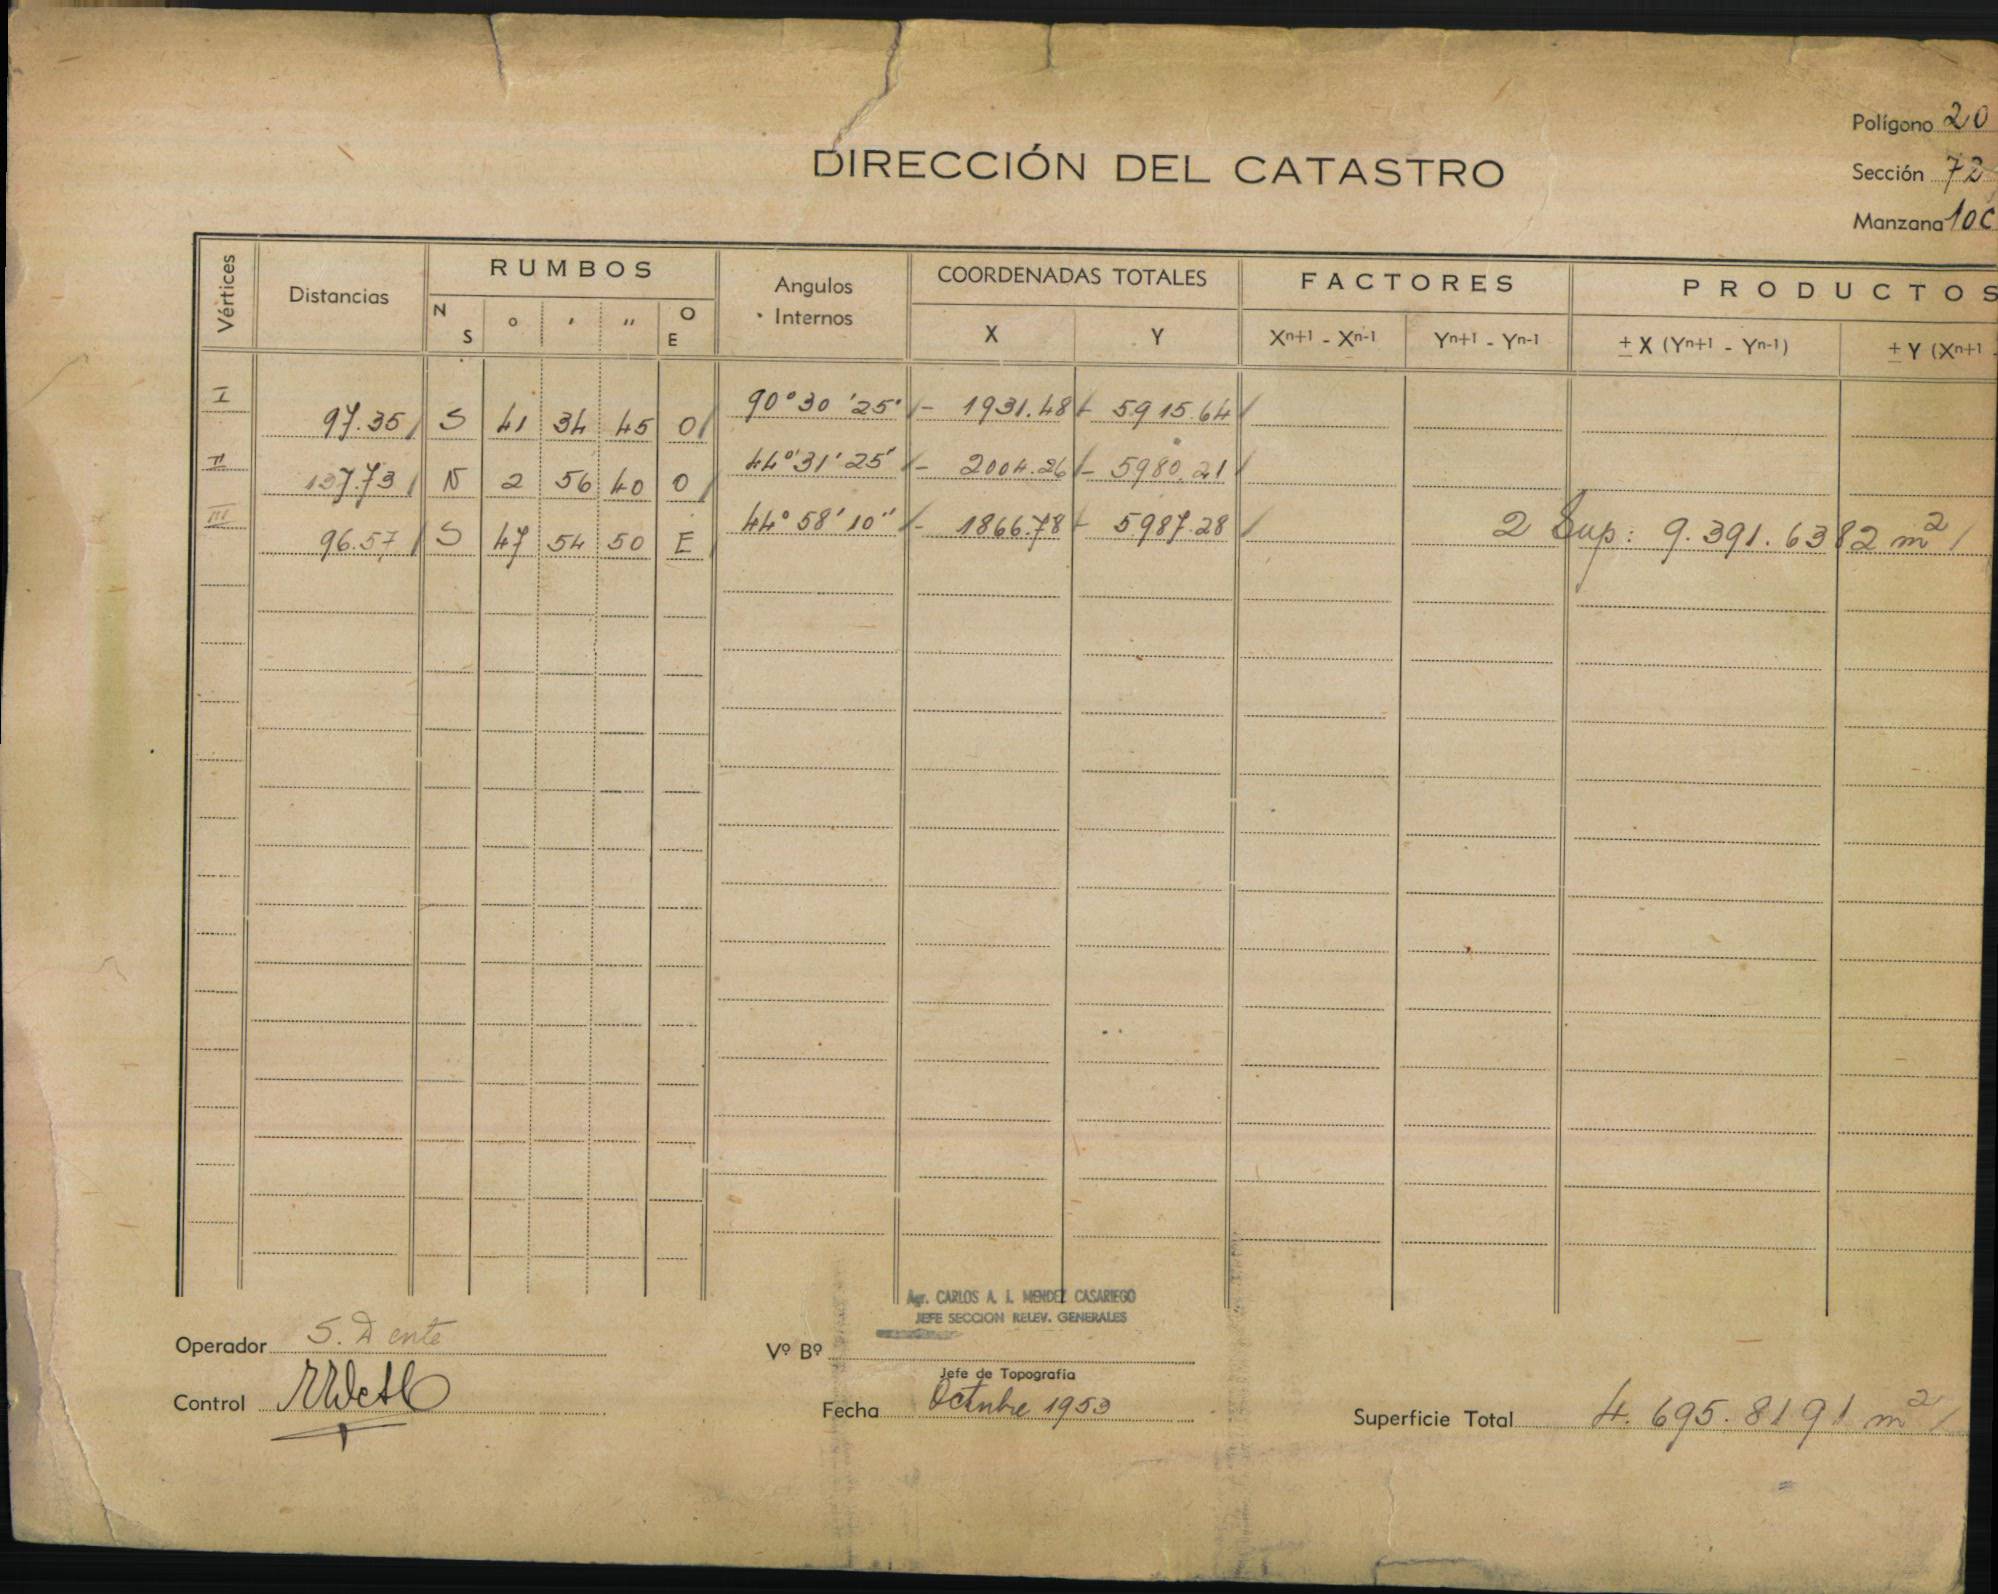 Polígono 20
DIRECCIÓN DEL CATASTRO
Sección 72
Manzana 10C
Vértices Distancias RUMBOS Angulos Internos COORDENADAS TOTALES FACTORES PRODUCTOS
N S ° ' " O E X Y Xn+1 - Xn-1 Yn+1 - Yn-1 ± X (Yn+1 - Yn-1) ± Y (Xn+1 -
I 97.35 S 41 34 45 O 90°30'25" - 1931.48 - 5915.64
II 137.73 N 2 56 40 O 44°31'25" - 2004.26 - 5980.21
III 96.57 S 47 54 50 E 44°58'10" - 1866.78 - 5987.28 2 Sup: 9.391.6382 m2
Agr. CARLOS A. J. MENDEZ CASARIEGO
JEFE SECCION RELEV. GENERALES
Operador S. Dente
Vº Bº
Jefe de Topografía
Control
Fecha Octubre 1953
Superficie Total 4.695.8191 m2